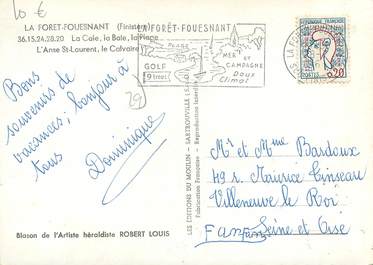 10 €
LA FORET-FOUESNANT (Finistère)
36.15.28.20 La Cale, la Baie, la Plage
L'Anse St-Laurent, le Calvaire
LA FORÊT-FOUESNANT
PLAGE
GOLF
9 trous
MER ET
CAMPAGNE
Doux
Climat
29
REPUBLIQUE FRANÇAISE
POSTES 0,20
Bons
souvenirs de
vacances, bonjour à
tous
Dominique
LES EDITIONS DU MOULIN - SARTROUVILLE (S.-&-O.)
Fabrication Française - Reproduction interdite
Mr et Mme Bardoux
49 r. Maurice Cinseau
Villeneuve le Roi
Seine et Oise
Blason de l'Artiste héraldiste ROBERT LOUIS